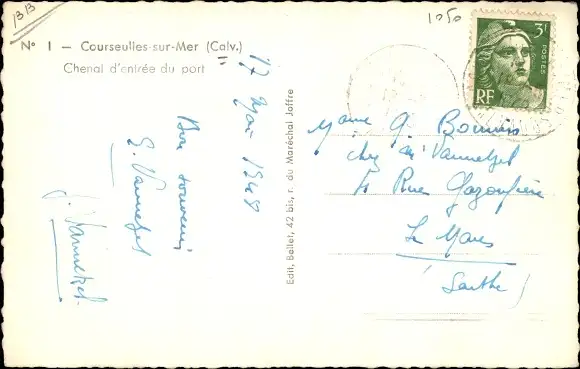 BB
1050
N° 1 — Courseulles-sur-Mer (Calv.)
Chenal d'entrée du port
17 Mai 1948
Bon souvenir
G. Vannetzel
J. Vannetzel
Edit. Bellet, 42 bis, r. du Maréchal Joffre
3F
POSTES
RF
Mame G. Bonnin
chez Mr Vannetzel
4 Rue
Le Mans
(Sarthe)